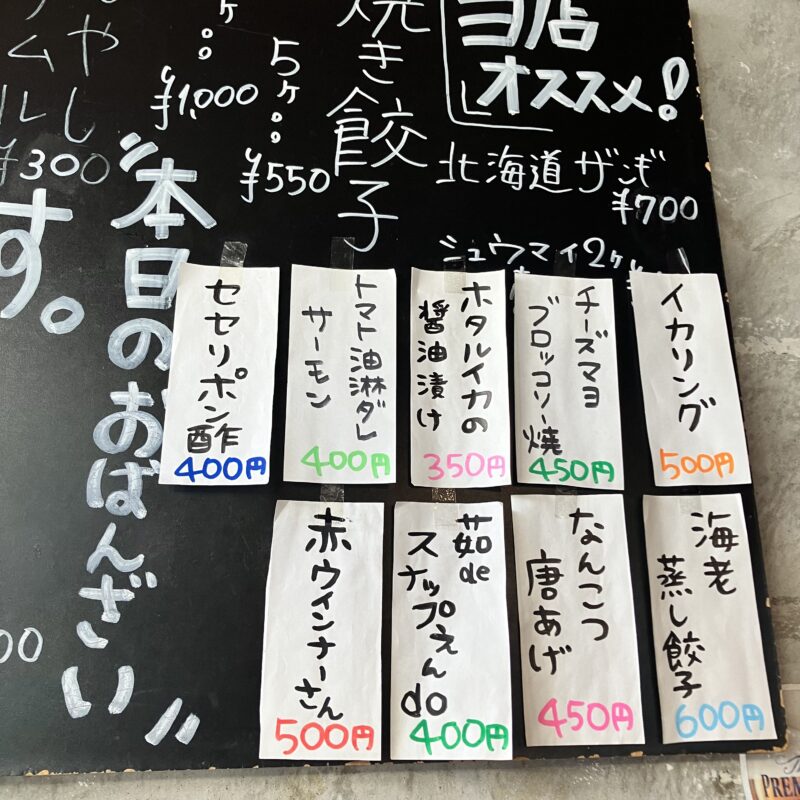 当店
オススメ!
北海道ザンギ
¥700
シュウマイ2ヶ
焼き餃子
5ヶ
¥550
ヶ
¥1,000
やし
ムル
¥300
す。
"本日のおばんざい"
イカリング
500円
チーズマヨ
ブロッコリー焼
450円
ホタルイカの
醤油漬け
350円
トマト油淋ダレ
サーモン
400円
セセリポン酢
400円
海老
蒸し餃子
600円
なんこつ
唐あげ
450円
茹de
スナップえんdo
400円
赤ウインナーさん
500円
00